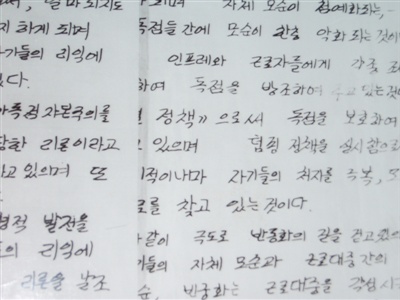 자체 모순이 첨예화되는
지 하게 되며
독점들 간에 모순이 한층 악화되는 것이
자기들의 리익에
인프레와 근로자들에게 가중
다.
하여 독점을 방조하여 주고 있는 것이
독점자본주의를
정책》으로써 독점을 보호하여
당한 리론이라고
고 있으며 협정 정책을 실시함으로
고 있으며 또
적이나마 자기들의 처지를
로를 찾고 있는 것이다.
적 발전을
같이 극도로 반동화의 길을 걷고 있으며
의 리익에
들의 자체 모순과 근로대중 간의
리론을 날조
순, 반동화는 근로대중을 각성시